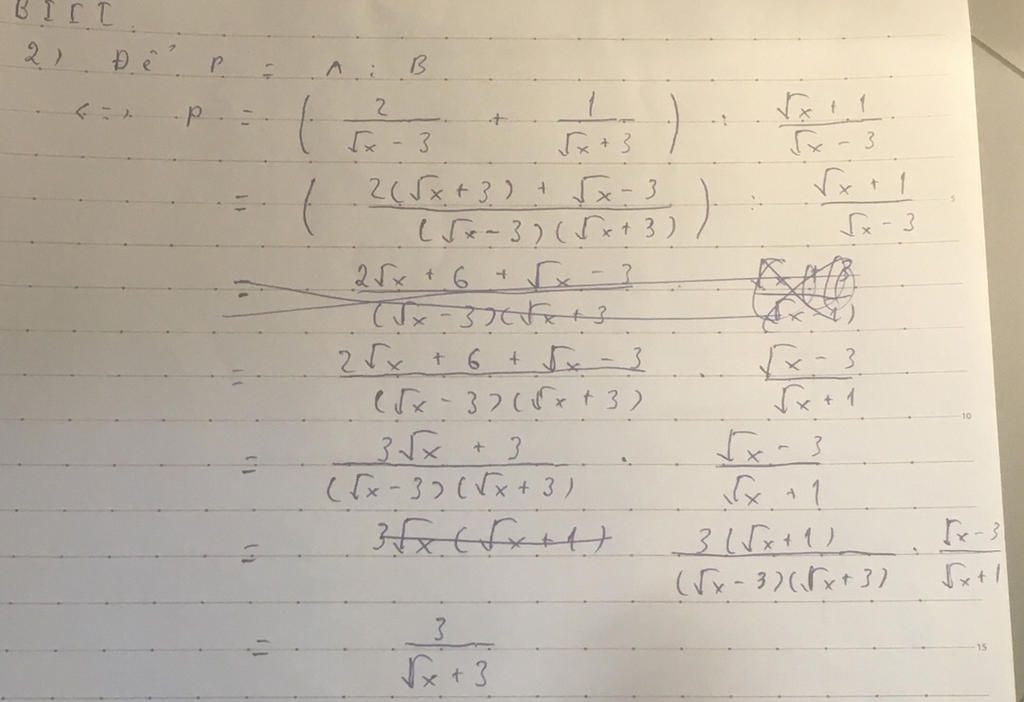 BIII.
2) Để P = A : B
<=> P = ( 2/(√x - 3) + 1/(√x + 3) ) : (√x + 1)/(√x - 3)
= ( (2(√x + 3) + √x - 3)/((√x - 3)(√x + 3)) ) : (√x + 1)/(√x - 3)
= (2√x + 6 + √x - 3)/((√x - 3)(√x + 3
= (2√x + 6 + √x - 3)/((√x - 3)(√x + 3)) . (√x - 3)/(√x + 1)
= (3√x + 3)/((√x - 3)(√x + 3)) . (√x - 3)/(√x + 1)
= 3√x (√x + 1) 3(√x + 1)/((√x - 3)(√x + 3)) . (√x - 3)/(√x + 1)
= 3/(√x + 3)
5
10
15